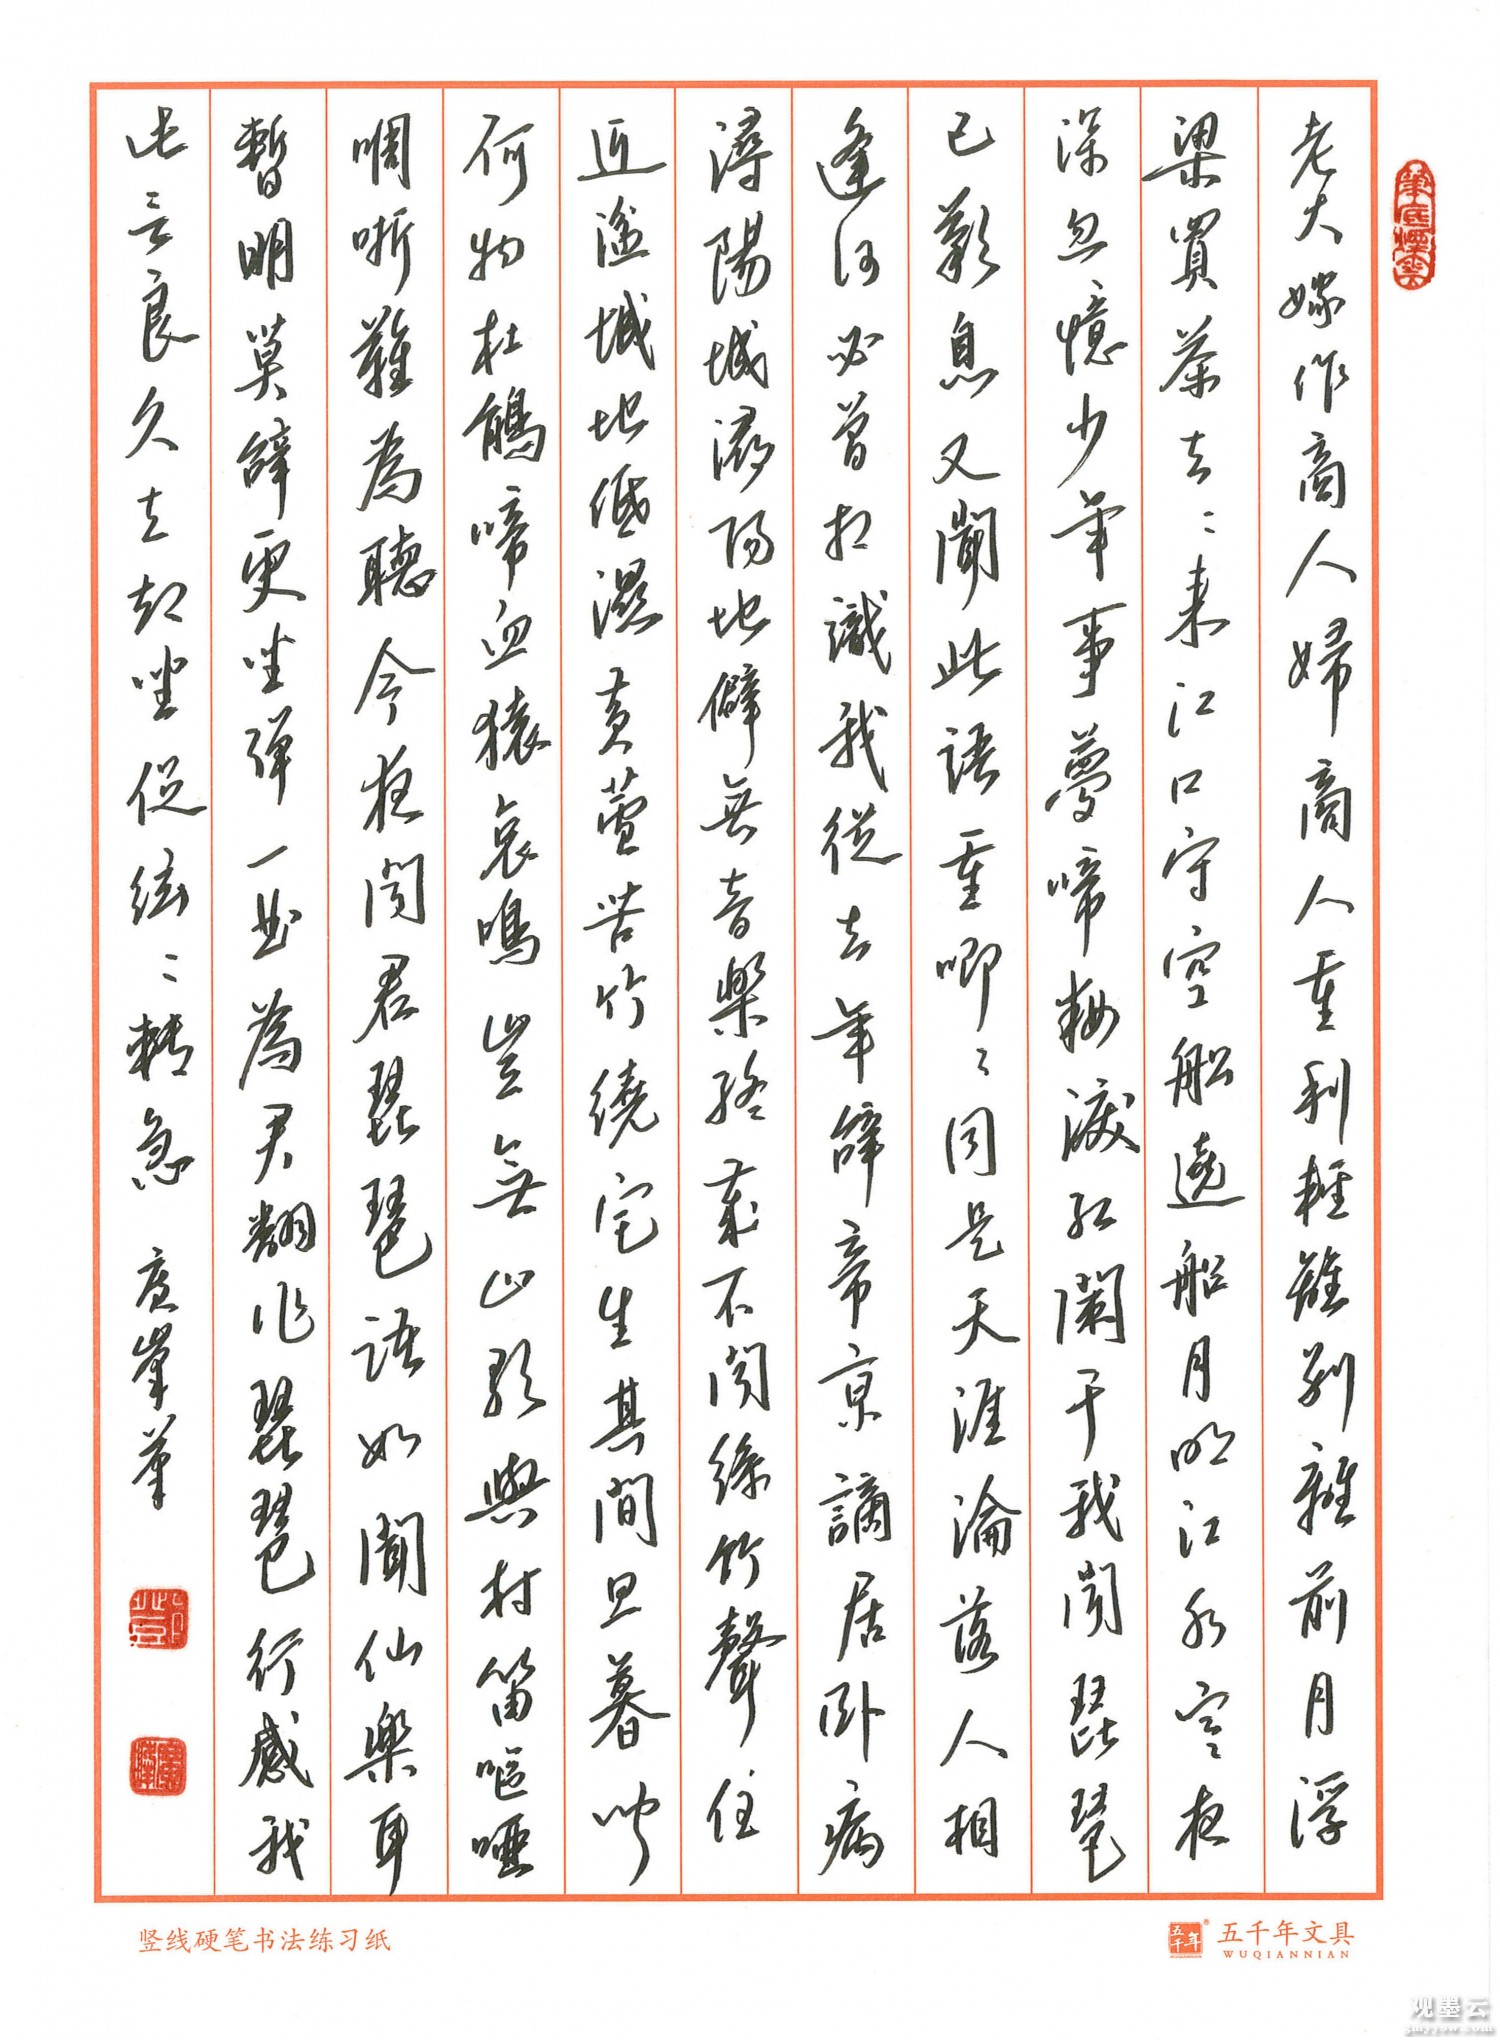 老大嫁作商人婦商人重利輕離別離前月浮
梁買茶去〻来江口守空船遶船月明江水寒夜
深忽憶少年事夢啼妝淚紅闌干我聞琵琶
已歎息又聞此語重唧〻同是天涯淪落人相
逢何必曾相識我從去年辭帝京謫居卧病
潯陽城潯陽地僻無音樂終歲不聞絲竹聲住
近湓城地低濕黄蘆苦竹繞宅生其間旦暮聞
何物杜鵑啼血猿哀鳴豈無山歌與村笛嘔啞
啁哳難為聽今夜聞君琵琶語如聞仙樂耳
暫明莫辭更坐彈一曲為君翻作琵琶行感我
此言良久立却坐促絃〻轉急 廣峯筆
筆底煙雲
竖线硬笔书法练习纸
五千年
五千年文具
WUQIANNIAN
观墨云